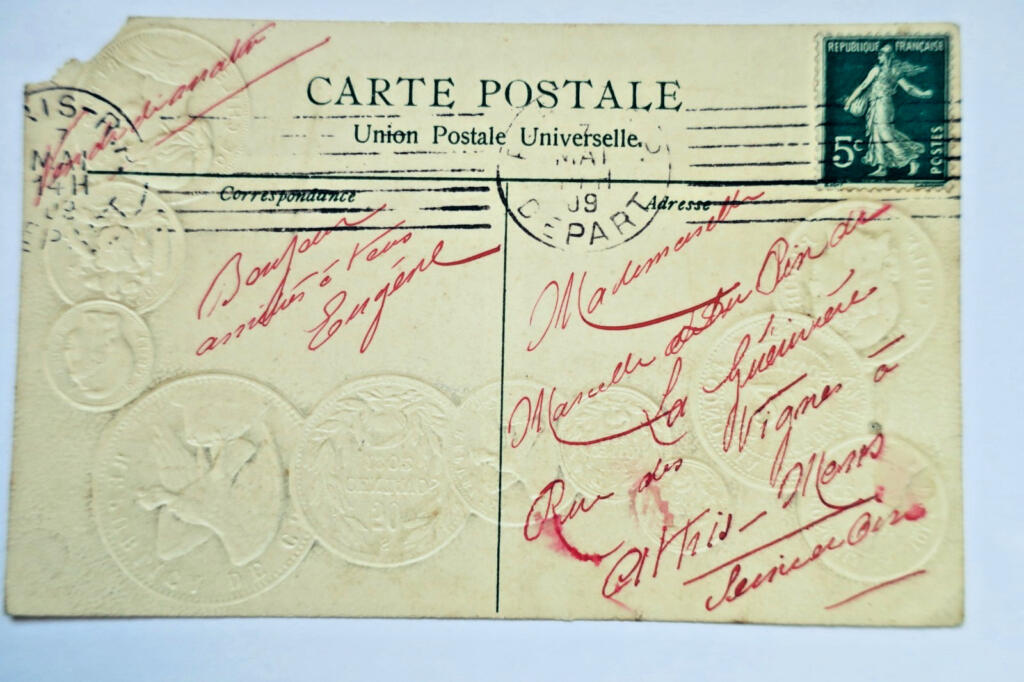 CARTE POSTALE
Union Postale Universelle.
REPUBLIQUE FRANÇAISE
5c
POSTES
MAI
14H
09
MAI
09
DEPART
Correspondance
Adresse
Bonjour
amitiés à tous
Eugène
Mademoiselle
Marcelle Du Pin de
La Guérinière
Rue des Vignes à
Athis-Mons
Seine et Oise